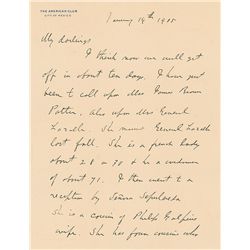 THE AMERICAN CLUB
CITY OF MEXICO
January 14th 1905
My darling:
I think now we will get
off in about ten days. I have just
been to call upon Mrs James Brown
Potter, also upon Mrs General
She married General
last fall. She is a french lady
about 28 or 30 & he a widower
of about 71. I then went to a
reception by Señora Sepulveda
She is a cousin of Philip Galpin's
wife. She has four cousins who